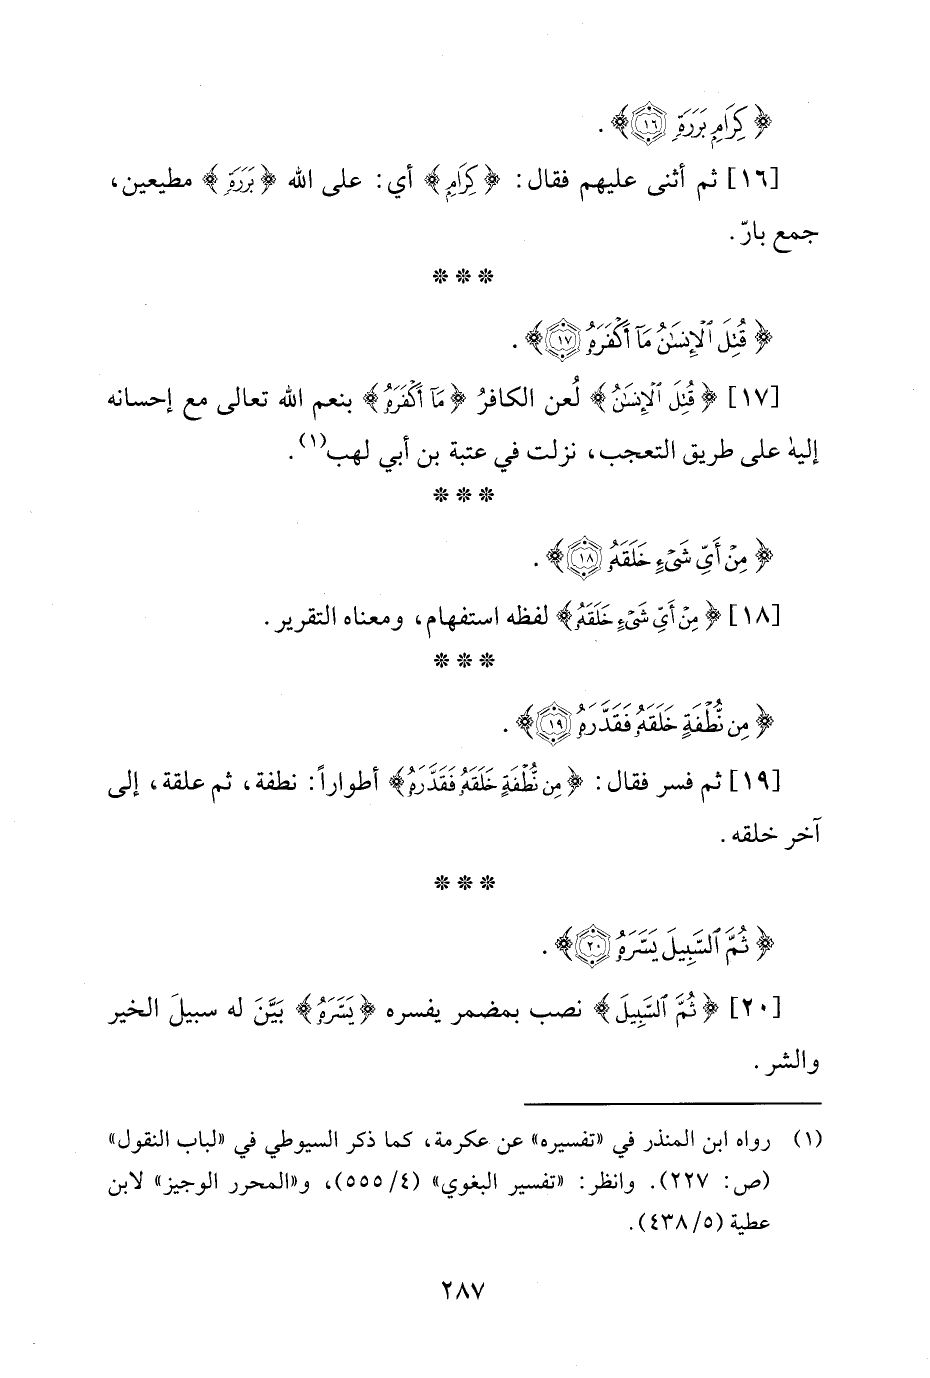 ﴿ كِرَامٍ بَرَرَةٍ ١٦﴾ .
[١٦] ثم أثنى عليهم فقال: ﴿ كِرَامٍ﴾ أي: على الله ﴿ بَرَرَةٍ ﴾ مطيعين،
جمع بارّ.
* * *
﴿ قُتِلَ ٱلْإِنسَٰنُ مَآ أَكْفَرَهُۥ ١٧﴾ .
[١٧] ﴿ قُتِلَ ٱلْإِنسَٰنُ﴾ لُعن الكافرُ ﴿ مَآ أَكْفَرَهُۥ﴾ بنعم الله تعالى مع إحسانه
إليه على طريق التعجب، نزلت في عتبة بن أبي لهب(١).
* * *
﴿ مِنْ أَيِّ شَىْءٍ خَلَقَهُۥ ١٨﴾ .
[١٨] ﴿ مِنْ أَيِّ شَىْءٍ خَلَقَهُۥ﴾ لفظه استفهام، ومعناه التقرير.
* * *
﴿ مِن نُّطْفَةٍ خَلَقَهُۥ فَقَدَّرَهُۥ ١٩﴾ .
[١٩] ثم فسر فقال: ﴿ مِن نُّطْفَةٍ خَلَقَهُۥ فَقَدَّرَهُۥ﴾ أطواراً: نطفة، ثم علقة، إلى
آخر خلقه.
* * *
﴿ ثُمَّ ٱلسَّبِيلَ يَسَّرَهُۥ ٢٠﴾ .
[٢٠] ﴿ ثُمَّ ٱلسَّبِيلَ﴾ نصب بمضمر يفسره ﴿يَسَّرَهُۥ﴾ بَيَّنَ له سبيلَ الخير
والشر.
(١) رواه ابن المنذر في «تفسيره» عن عكرمة، كما ذكر السيوطي في «لباب النقول»
(ص: ٢٢٧). وانظر: «تفسير البغوي» (٤/ ٥٥٥)، و«المحرر الوجيز» لابن
عطية (٥/ ٤٣٨).
٢٨٧